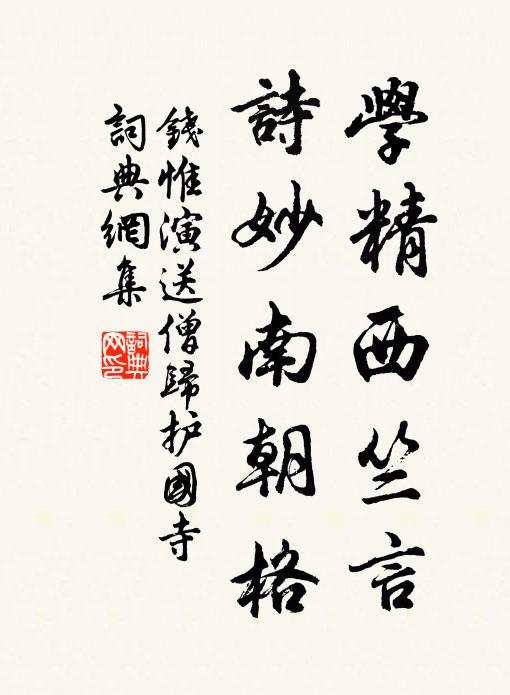 學精西竺言
詩妙南朝格
錢惟演送僧歸护國寺
詞典網集
詞典網印